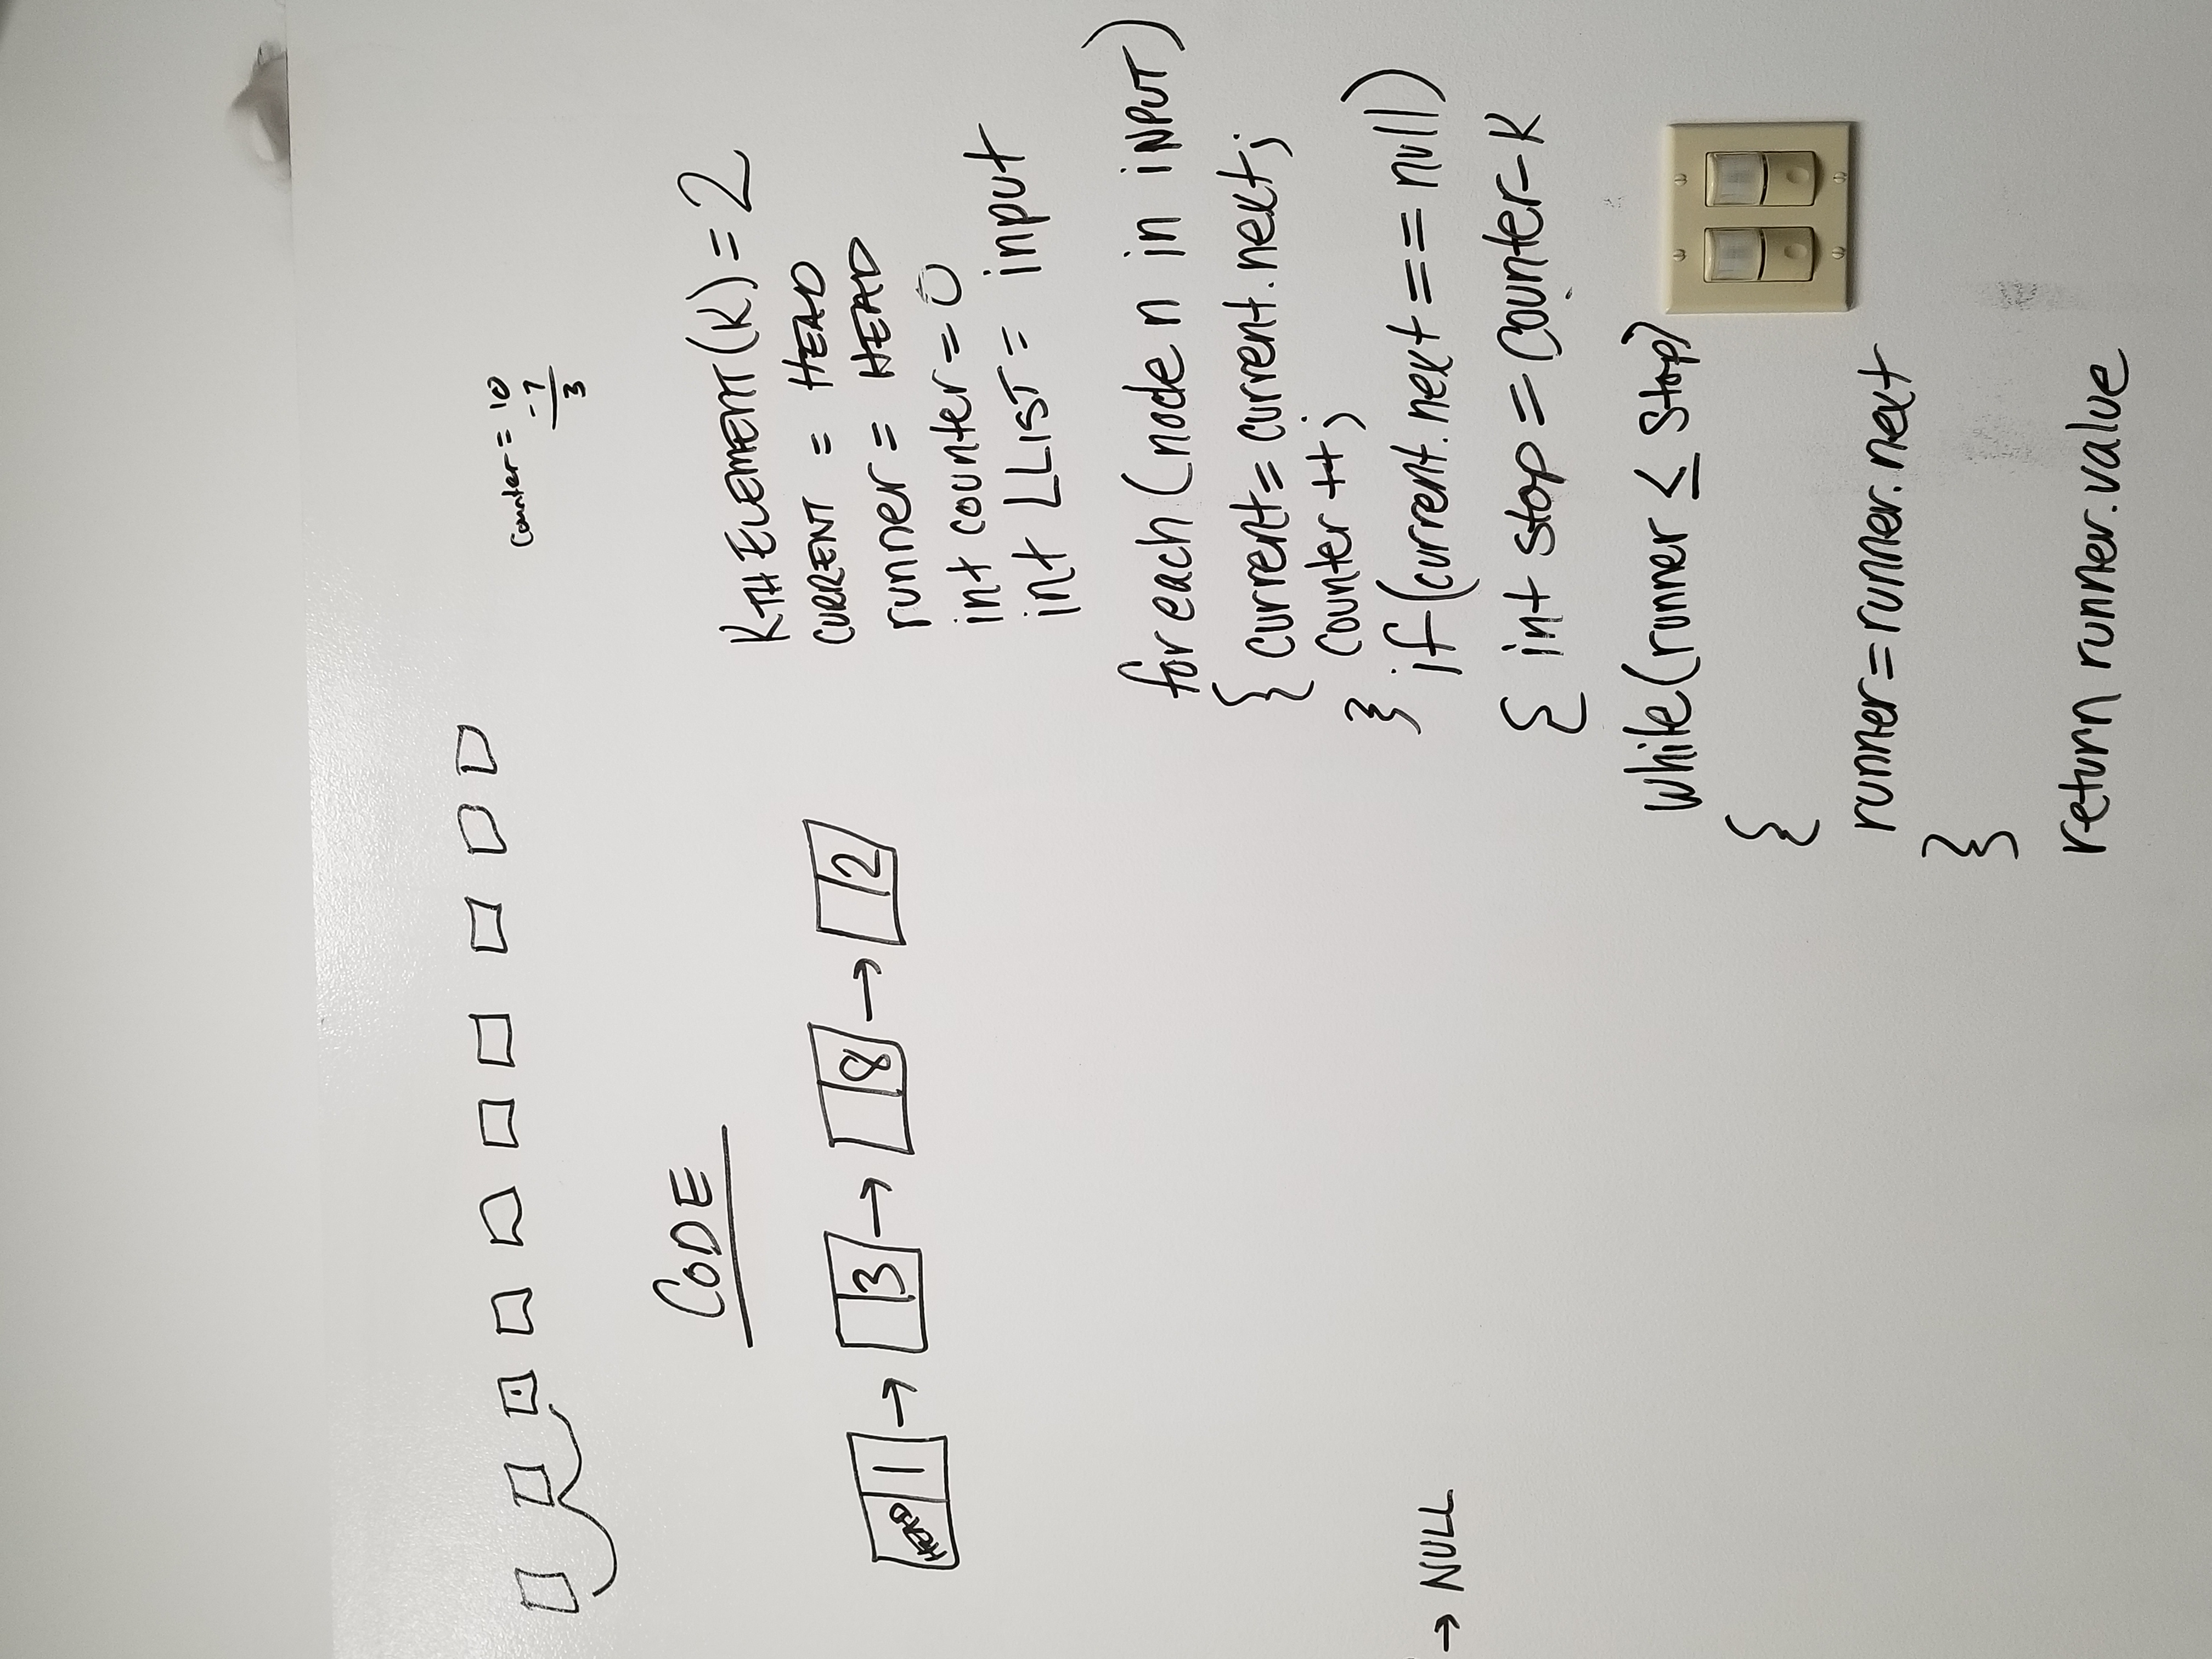 Counter = 10
-7
3
CODE
HEAD 1 → 3 → 8 → 2
KTH ELEMENT(K) = 2
CURRENT = HEAD
runner = HEAD
int counter = 0
int LLIST = input
for each (node n in iNPUT)
{ current = current.next;
counter ++;
}
if(current.next == null)
→ NULL
{ int stop = Counter - K
while(runner ≤ Stop)
{
runner = runner.next
}
return runner.value